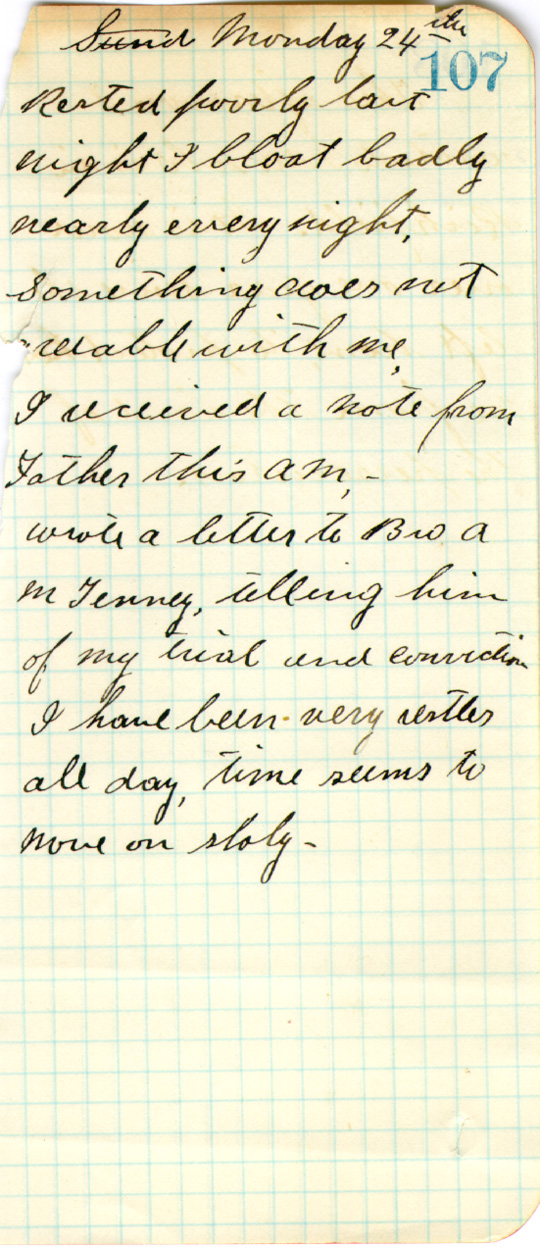 Sund Monday 24th
107
Rested poorly last
night I bloat badly
nearly every night,
something does not
with me,
I received a note from
Father this A M, -
wrote a letter to Bro A
M Tenney, telling him
of my trial and conviction
I have been very restles
all day, time seems to
move on sloly -